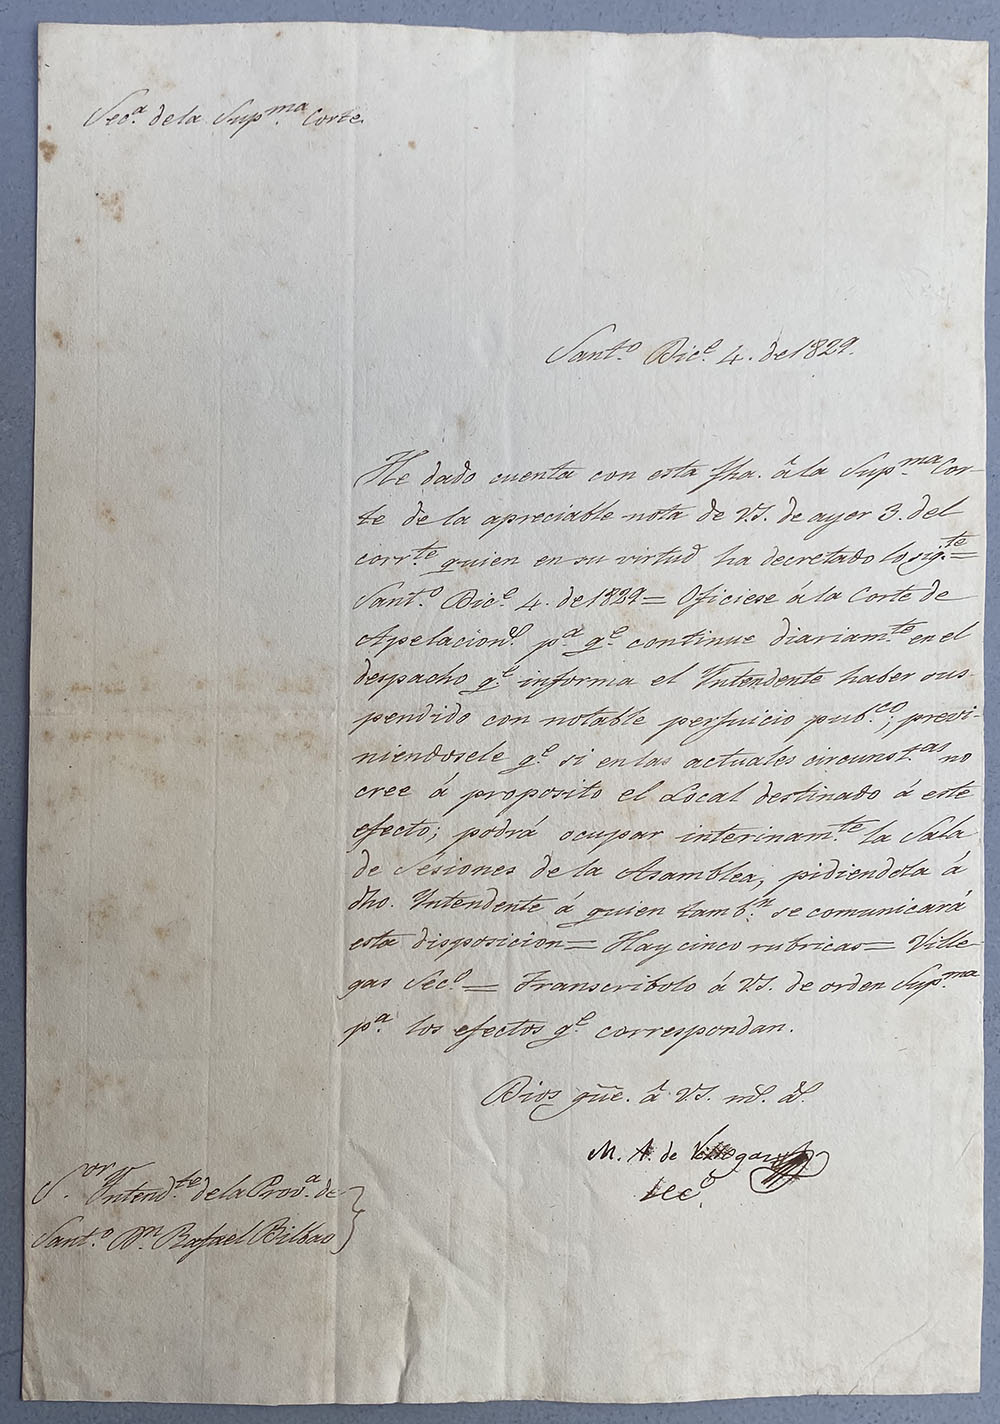 Sec.ª de la Sup.ma Corte.
Sant.º Dic.e 4. de 1829.
He dado cuenta con esta fha. â la Sup.ma Cor-
te de la apreciable nota de V.S. de ayer 3. del
corr.te quien en su virtud ha decretado lo sig.te =
Sant.º Dic.e 4. de 1829 = Oficiese á la Corte de
Apelacion.s p.a q.e continue diariam.te en el
despacho q.e informa el Yntendente haber sus-
pendido con notable perjuicio pub.co; previ-
niendosele q.e si en las actuales circunst.as no
cree á proposito el Local destinado á este
efecto; podrá ocupar interinam.te la Sala
de Sesiones de la Asamblea, pidiendola á
dho. Yntendente á quien tamb.n se comunicará
esta disposicion = Hay cinco rubricas = Ville-
gas Sec.º = Transcribolo á V.S. de orden Sup.ma
p.a los efectos q.e correspondan.
Dios gue. â V.S. m.s a.s
M. A. de Villegas
Sec.º
S.or Yntend.te de la Prov.a de
Sant.º D.n Rafael Bilbao